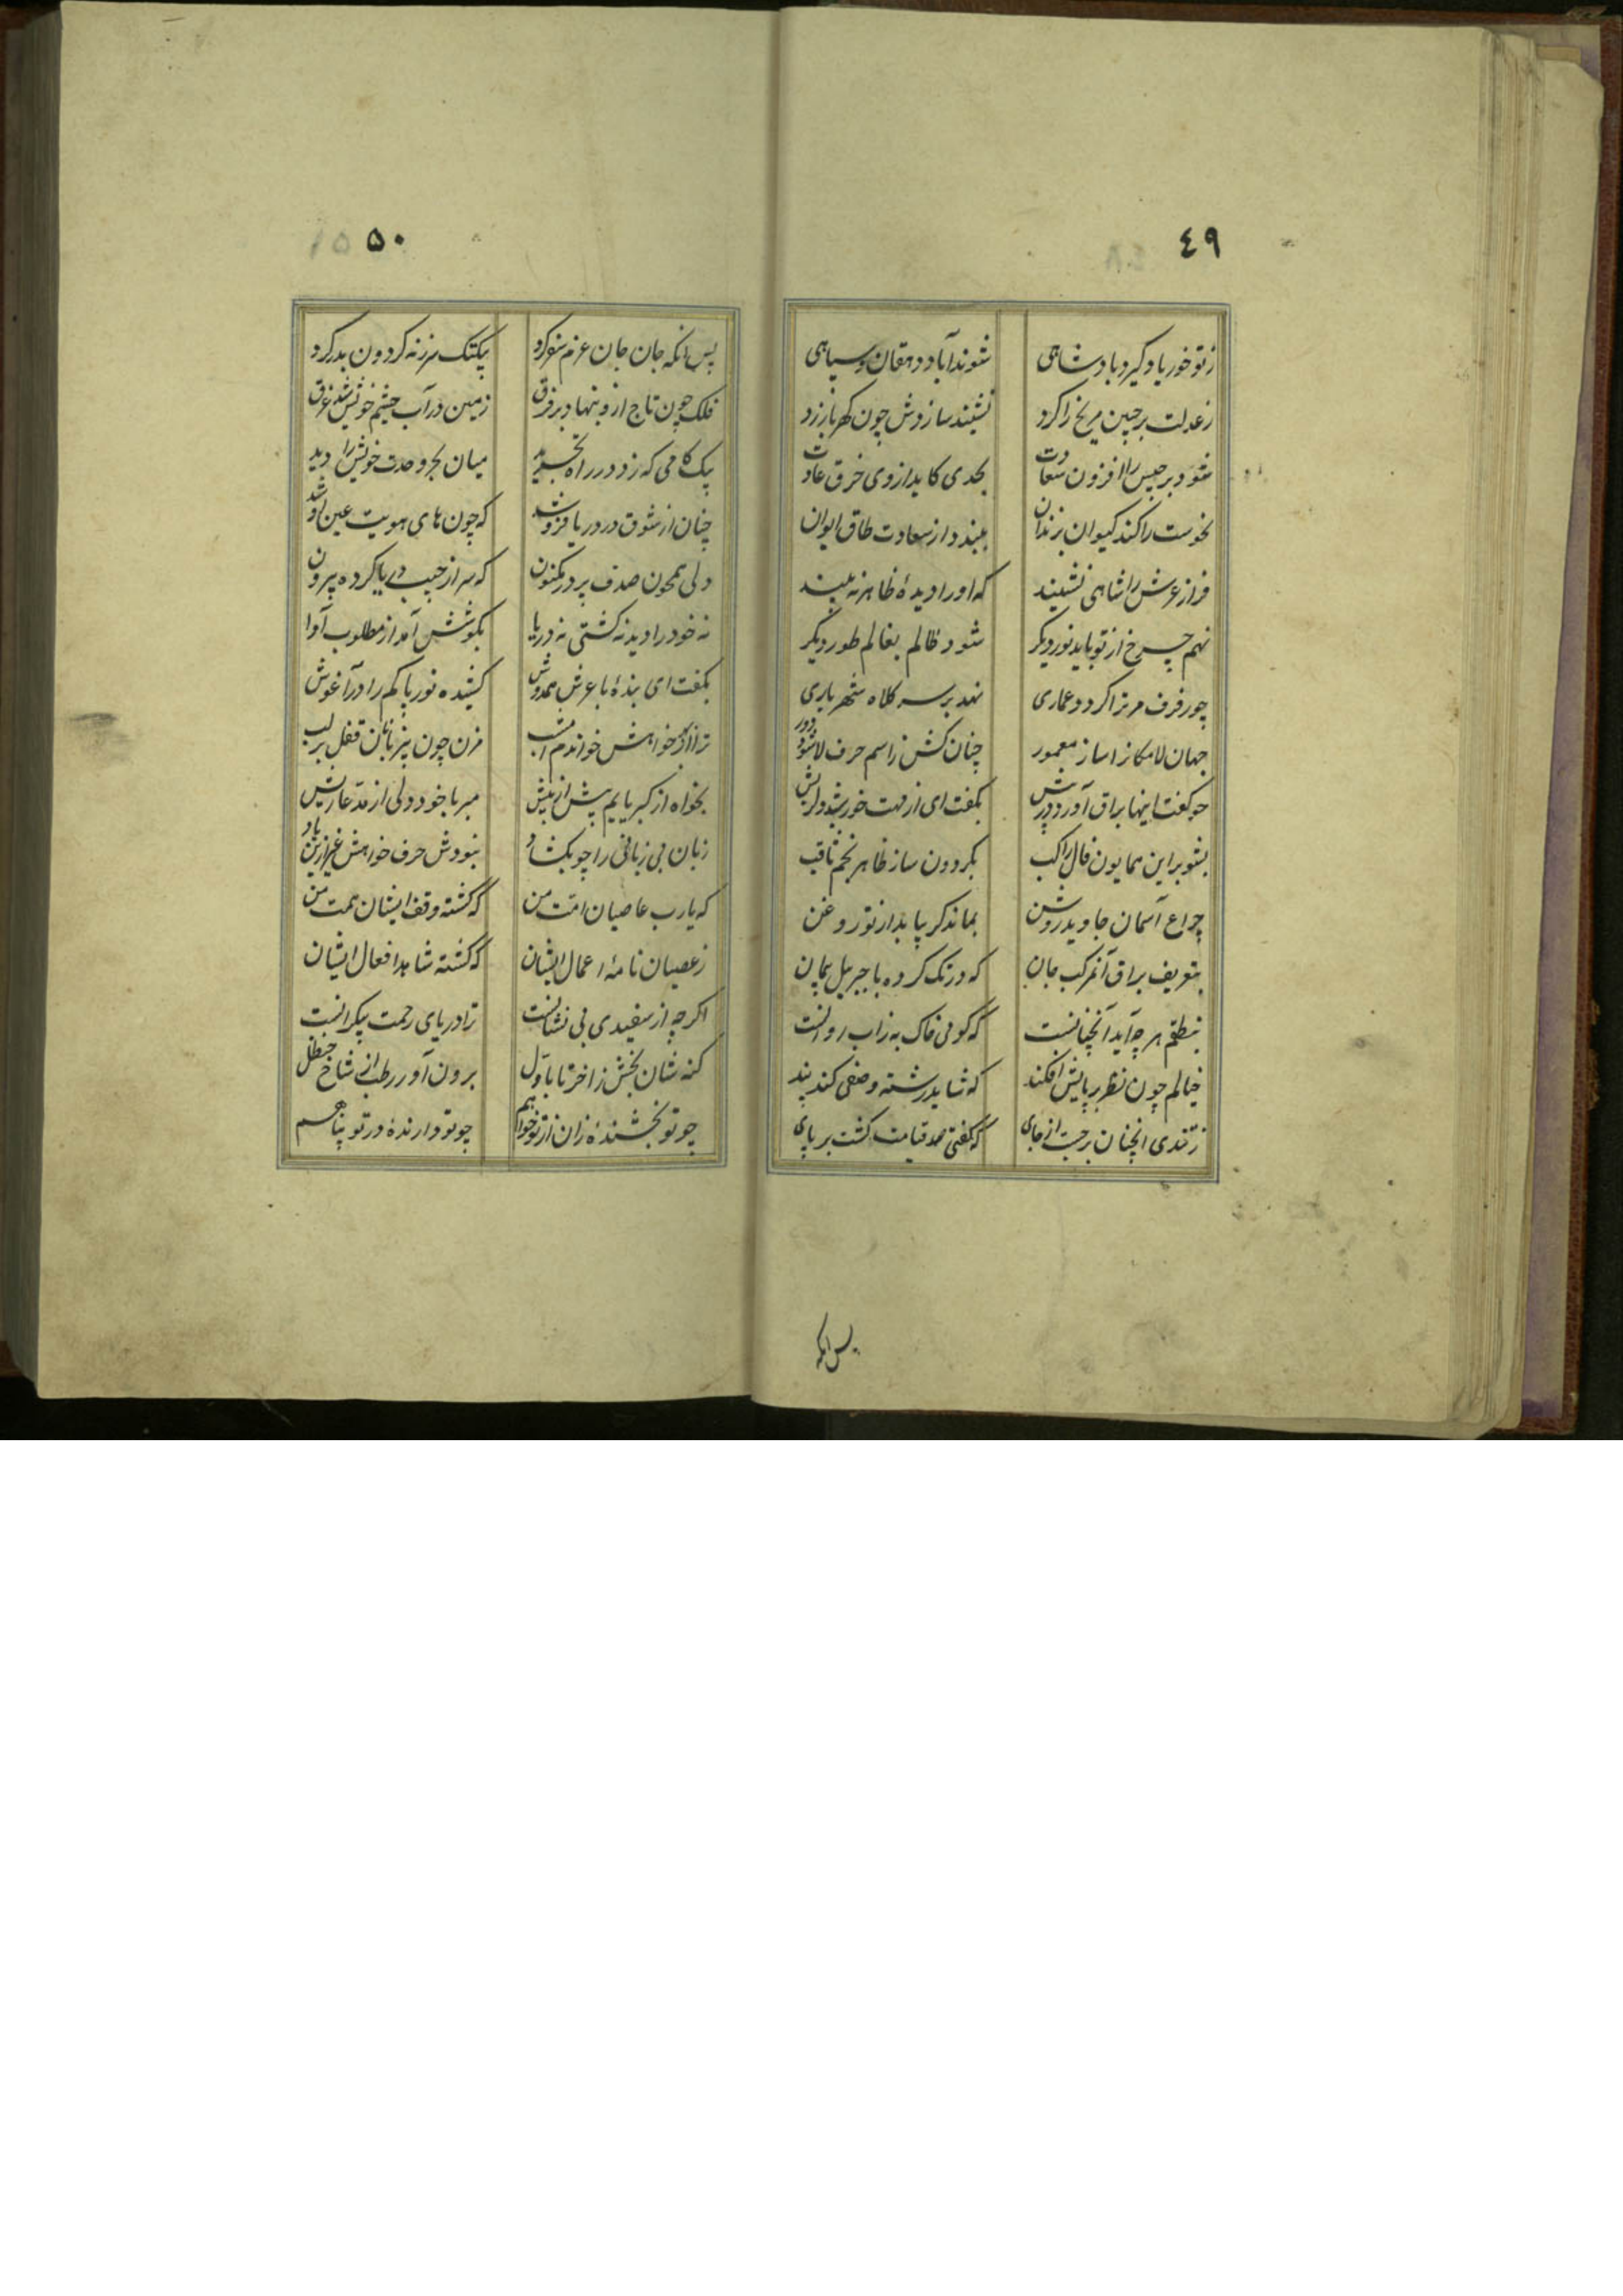 ٤٩
ز تو خور یاد گیرد پادشاهی شوند آباد دهقان و سپاهی
ز عدلت بر جبین مریخ را گرد نشیند سازدش چون کهربا زرد
شود برجیس را افزون سعادت بحدی کاید از وی خرق عادت
نحوست را کند کیوان بزندان ببندد از سعادت طاق ایوان
فراز عرش را شاهی نشیند که او را دیدهٔ ظاهر نه بیند
نهم چرخ از تو یابد نور دیگر شود ظالم بعالم طور دیگر
چو رفرف مر ترا گردد عماری نهد بر سر کلاه شهریاری
جهان لامکانرا ساز معمور چنان کش ز اسم حرف لا شود دور
چو گفت اینها براق آورد در پیش بگفت ای از مهت خورشید دلریش
بشو بر این همایون فال راکب بگردون ساز ظاهر نجم ثاقب
چراغ آسمان جاوید روشن بماند گر بیابد از تو روغن
بتعریف براق آنمرکب جان که در تک کرده با جبریل پیمان
بنطقم هر چه آید آنچنانست که گوئی خاک به ز آب روانست
خیالم چون نظر بر پایش افکند که شاید رشته وصفی کند بند
ز تندی انچنان برجست از جای که گفتی صد قیامت گشت بر پای
پس آنکه
٥٠
پس آنکه جان جان عزم سفر کرد بیکتک سر ز نه گردون بدر کرد
فلک چون تاج ازو بنهاد بر فرق زمین در آب چشم خویش شد غرق
بیک گامی که زد در راه تجرید میان بحر وحدت خویش را دید
چنان از شوق در دریا فرو شد که چون های هویت عین او شد
دلی همچون صدف پر در مکنون که سر از جیب دریا کرده بیرون
نه خود را دید نه کشتی نه دریا بگوشش آمد از مطلوب آوا
بگفت ای بندهٔ با عرش همدوش کشیده نور پاکم را در آغوش
ترا از خواهش خواندم امشب مزن چون بیزبانان قفل بر لب
بخواه از کبریایم بیش از پیش مبر با خود دلی از مدعا ریش
زبان بی زبانی را چو بگشاد نبودش حرف خواهش غیر ازین یاد
که یارب عاصیان امت من که گشته وقف ایشان همت من
ز عصیان نامهٔ اعمال ایشان که گشته شاهد افعال ایشان
اگر چه از سفیدی بی نشانست ترا دریای رحمت بیکرانست
گنه شان بخش ز اخر تا باول برون آور رطب از شاخ حنظل
چو تو بخشندهٔ زان از تو خواهم چو تو دارندهٔ در تو پناهم